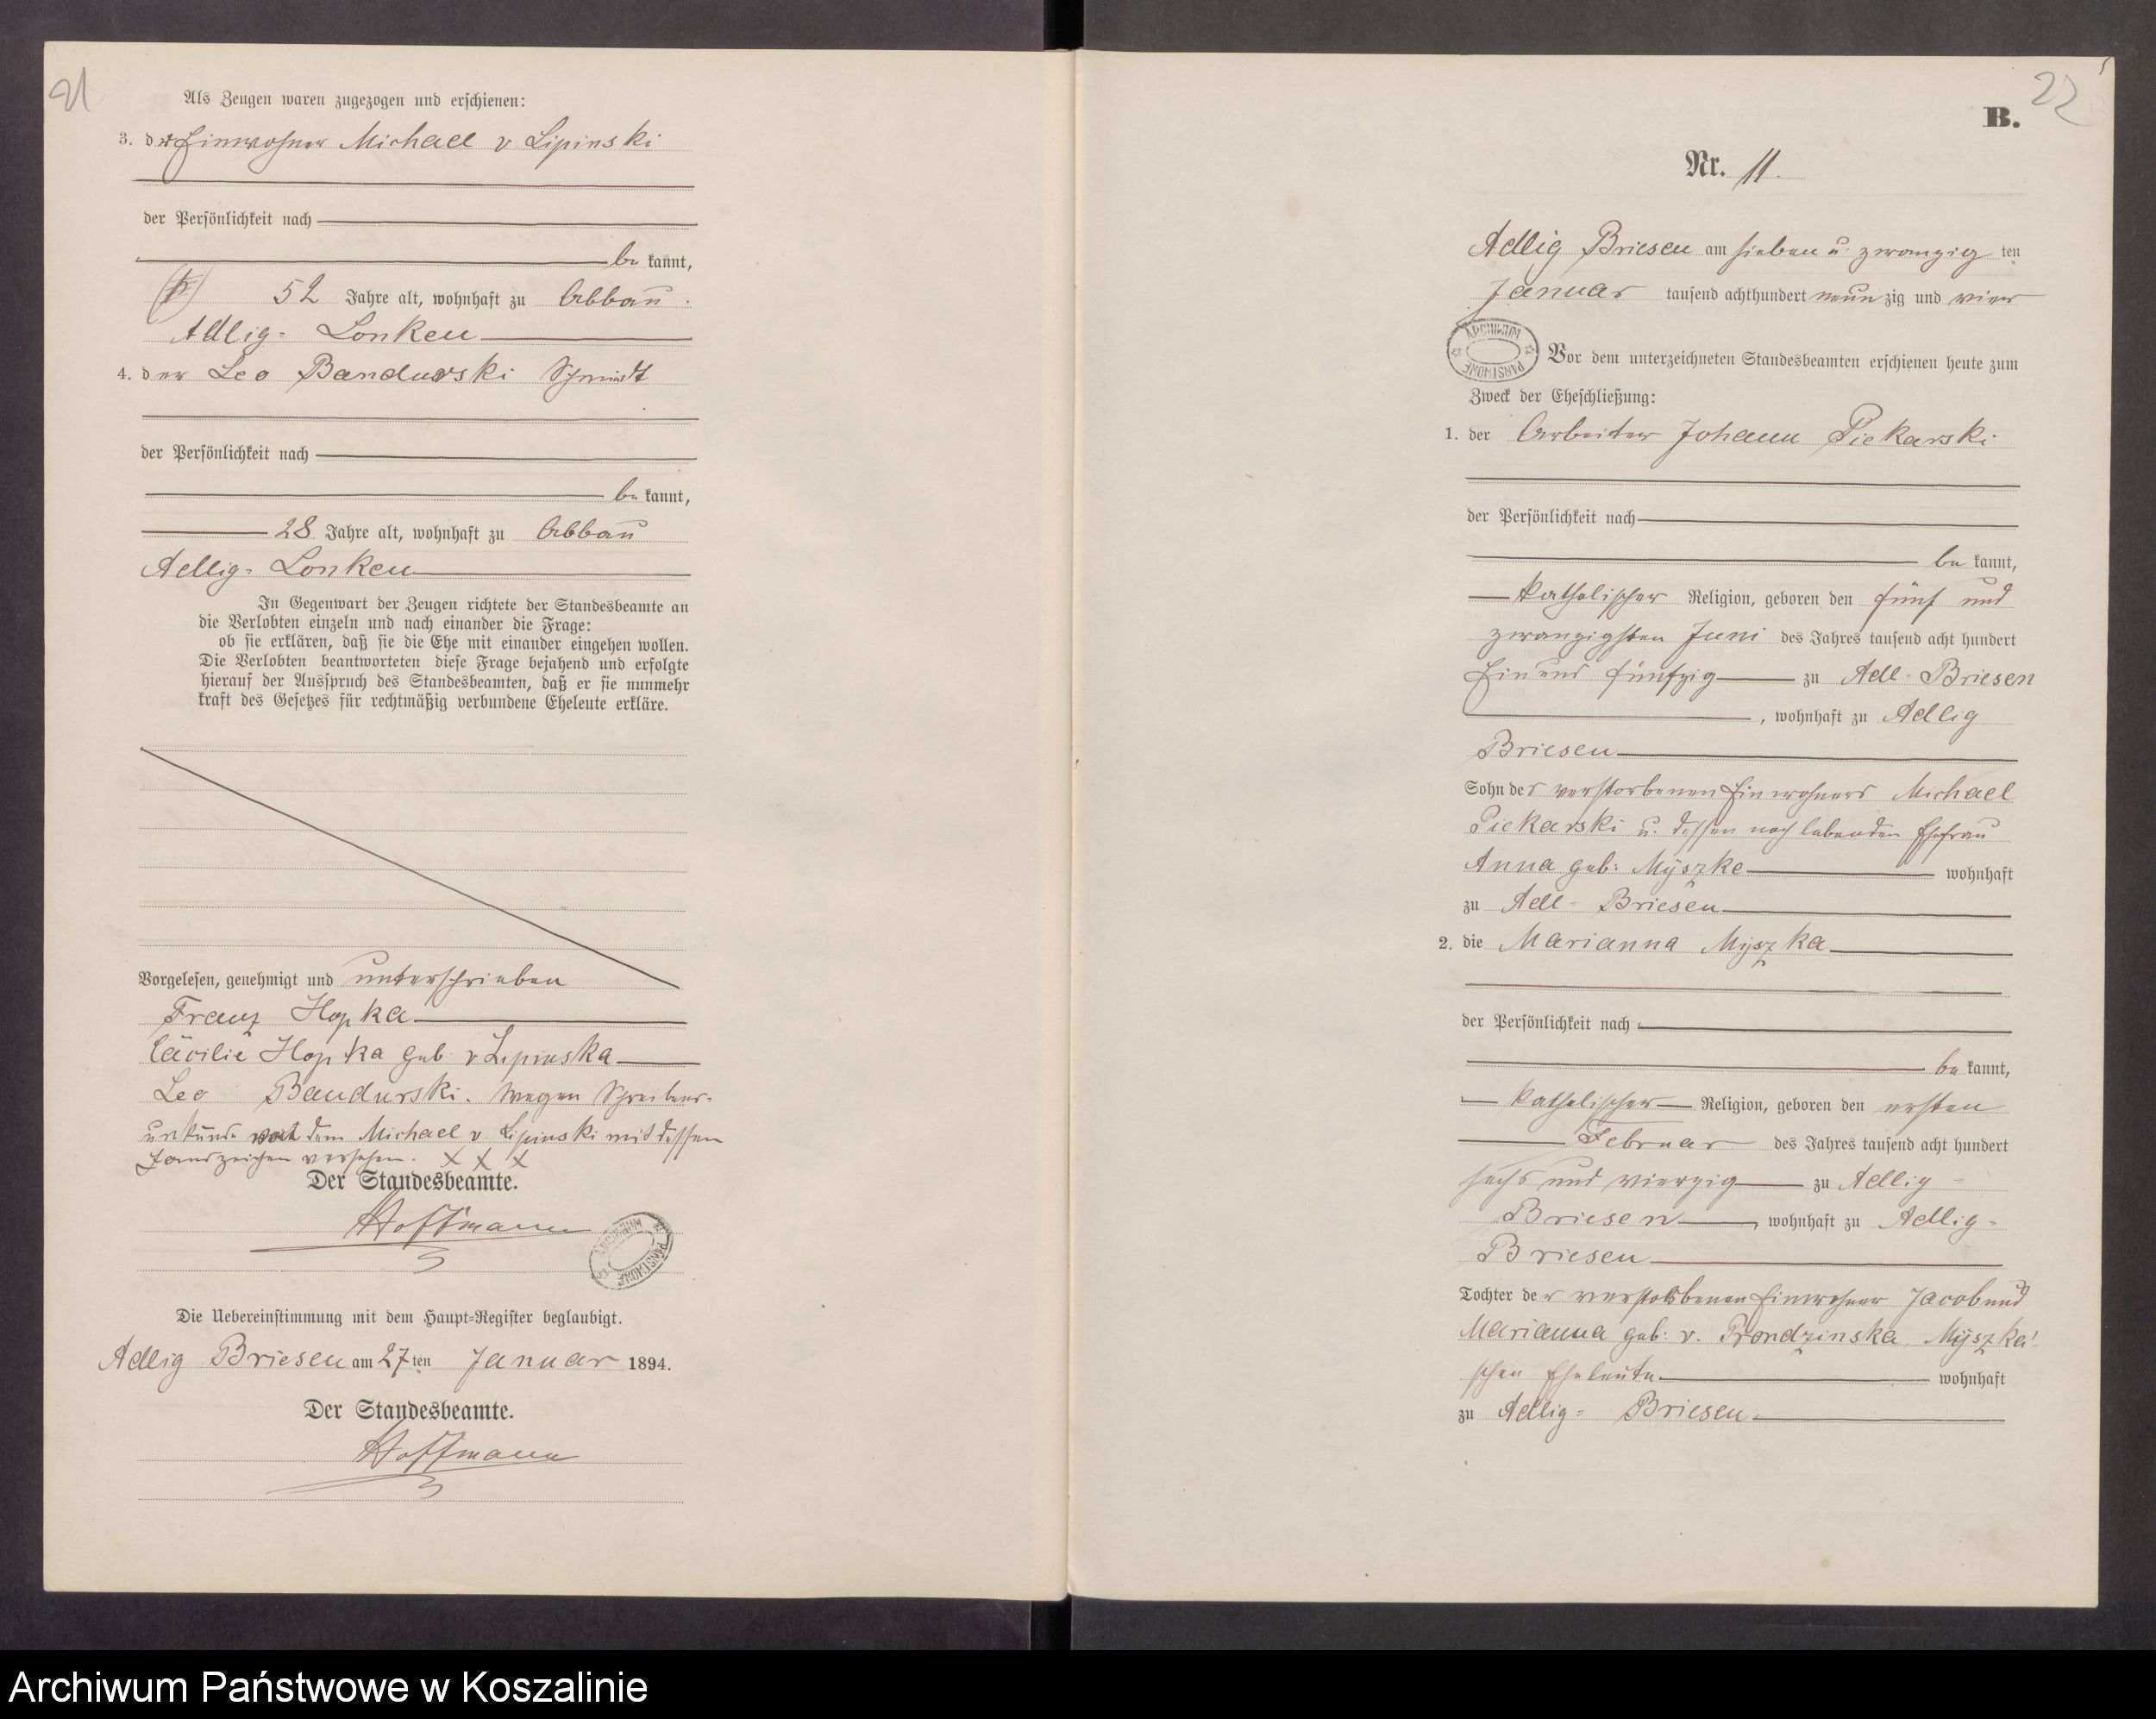 21
Als Zeugen waren zugezogen und erschienen:
3. der Einwohner Michael v Lipinski
der Persönlichkeit nach
be kannt,
52 Jahre alt, wohnhaft zu Abbau
Adlig- Lonken
4. der Leo Bandurski Schmidt
der Persönlichkeit nach
be kannt,
28 Jahre alt, wohnhaft zu Abbau
Adlig- Lonken
In Gegenwart der Zeugen richtete der Standesbeamte an
die Verlobten einzeln und nach einander die Frage:
ob sie erklären, daß sie die Ehe mit einander eingehen wollen.
Die Verlobten beantworteten diese Frage bejahend und erfolgte
hierauf der Ausspruch des Standesbeamten, daß er sie nunmehr
kraft des Gesetzes für rechtmäßig verbundene Eheleute erkläre.
Vorgelesen, genehmigt und unterschrieben
Franz Hopka
Cäcilie Hopka geb. v Lipinska
Leo Bandurski. Wegen Schreibens-
unkunde von dem Michael v. Lipinski mit dessen
Handzeichen versehen. X X X
Der Standesbeamte.
Hoffmann
ARCHIWUM PAŃSTWOWE
Die Uebereinstimmung mit dem Haupt-Register beglaubigt.
Adlig Briesen am 27 ten Januar 1894.
Der Standesbeamte.
Hoffmann
22
B.
Nr. 11.
Adlig Briesen am sieben u. zwanzig ten
Januar tausend achthundert neun zig und vier
ARCHIWUM PAŃSTWOWE
Vor dem unterzeichneten Standesbeamten erschienen heute zum
Zweck der Eheschließung:
1. der Arbeiter Johann Piekarski
der Persönlichkeit nach
be kannt,
katholischer Religion, geboren den fünf und
zwanzigsten Juni des Jahres tausend acht hundert
Ein und fünfzig zu Adl- Briesen
, wohnhaft zu Adlig
Briesen
Sohn des verstorbenen Einwohners Michael
Piekarski u. dessen noch lebenden Ehefrau
Anna geb: Myszke wohnhaft
zu Adl- Briesen
2. die Marianna Myszka
der Persönlichkeit nach
be kannt,
katholischer Religion, geboren den ersten
Februar des Jahres tausend acht hundert
sechs und vierzig zu Adlig-
Briesen, wohnhaft zu Adlig-
Briesen
Tochter der verstorbenen Einwohner Jacob und
Marianna geb: v. Prondzinska Myszka'
schen Eheleute wohnhaft
zu Adlig- Briesen.
Archiwum Państwowe w Koszalinie